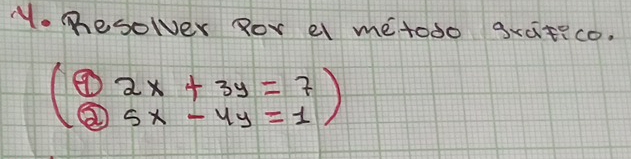 4. Resolver por el método gráfico.
① 2x + 3y = 7
② 5x - 4y = 1